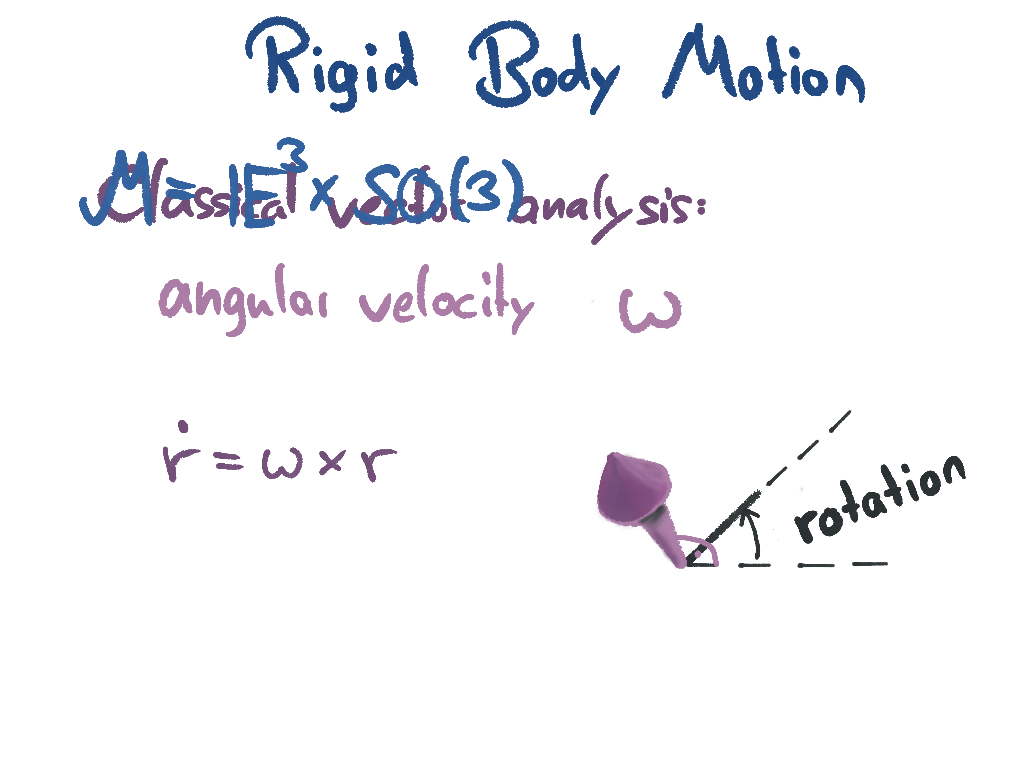 Rigid Body Motion
M = E³ × SO(3)
Classical vector analysis:
angular velocity ω
ṙ = ω × r
rotation